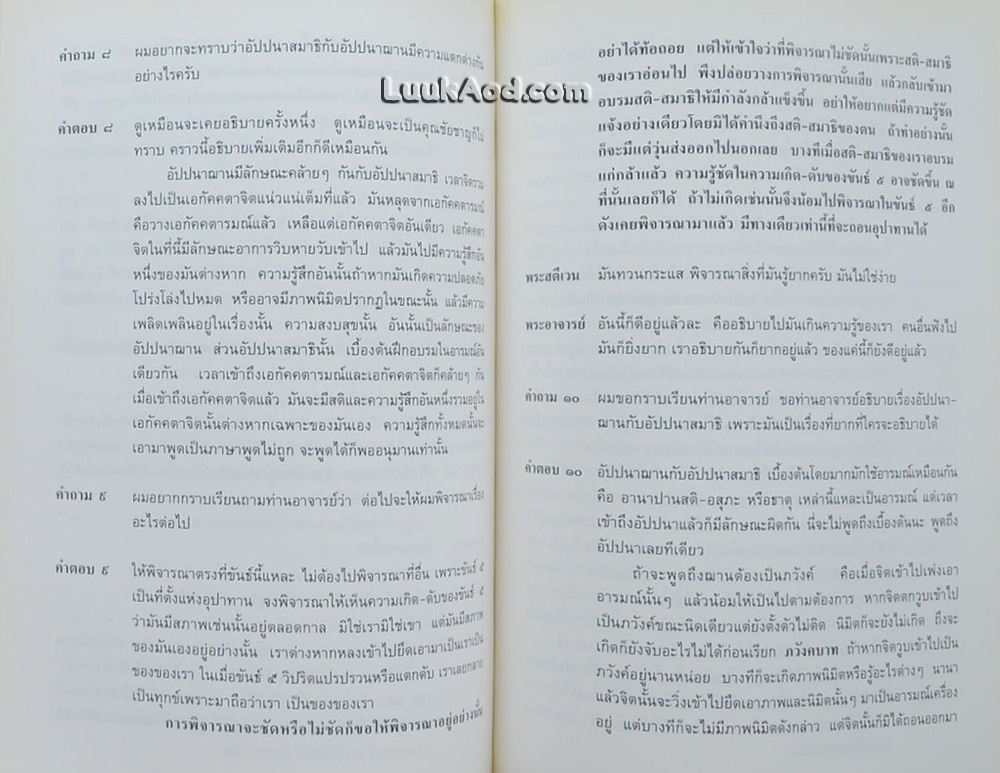 คำถาม ๘ ผมอยากจะทราบว่าอัปปนาสมาธิกับอัปปนาฌานมีความแตกต่างกัน
อย่างไรครับ
คำตอบ ๘ ดูเหมือนจะเคยอธิบายครั้งหนึ่ง ดูเหมือนจะเป็นคุณชัยชาญก็ไม่
ทราบ คราวนี้อธิบายเพิ่มเติมอีกก็ดีเหมือนกัน
อัปปนาฌานมีลักษณะคล้ายๆ กันกับอัปปนาสมาธิ เวลาจิตรวม
ลงไปเป็นเอกัคคตาจิตแน่วแน่เต็มที่แล้ว มันหลุดจากเอกัคคตารมณ์
คือวางเอกัคคตารมณ์แล้ว เหลือแต่เอกัคคตาจิตอันเดียว เอกัคคตา
จิตในที่นี้มีลักษณะอาการวิบหายวับเข้าไป แล้วมันไปมีความรู้สึกอัน
หนึ่งของมันต่างหาก ความรู้สึกอันนั้นถ้าหากมันเกิดความปลอดภัย
โปร่งโล่งไปหมด หรืออาจมีภาพนิมิตปรากฏในขณะนั้น แล้วมีความ
เพลิดเพลินอยู่ในเรื่องนั้น ความสงบสุขนั้น อันนั้นเป็นลักษณะของ
อัปปนาฌาน ส่วนอัปปนาสมาธินั้น เบื้องต้นฝึกอบรมในอารมณ์อัน
เดียวกัน เวลาเข้าถึงเอกัคคตารมณ์และเอกัคคตาจิตก็คล้ายๆ กัน
เมื่อเข้าถึงเอกัคคตาจิตแล้ว มันจะมีสติและความรู้สึกอันหนึ่งรวมอยู่ใน
เอกัคคตาจิตนั้นต่างหากเฉพาะของมันเอง ความรู้สึกทั้งหมดนั้นจะ
เอามาพูดเป็นภาษาพูดไม่ถูก จะพูดได้ก็พออนุมานเท่านั้น
คำถาม ๙ ผมอยากกราบเรียนถามท่านอาจารย์ว่า ต่อไปจะให้ผมพิจารณาเรื่อง
อะไรต่อไป
คำตอบ ๙ ให้พิจารณาตรงที่ขันธ์นี้แหละ ไม่ต้องไปพิจารณาที่อื่น เพราะขันธ์ ๕
เป็นที่ตั้งแห่งอุปาทาน จงพิจารณาให้เห็นความเกิด-ดับของขันธ์ ๕
ว่ามันมีสภาพเช่นนั้นอยู่ตลอดกาล มิใช่เรามิใช่เขา แต่มันมีสภาพ
ของมันเองอยู่อย่างนั้น เราต่างหากหลงเข้าไปยึดเอามาเป็นเราเป็น
ของของเรา ในเมื่อขันธ์ ๕ วิปริตแปรปรวนหรือแตกดับ เราเลยกลาย
เป็นทุกข์เพราะมาถือว่าเรา เป็นของของเรา
การพิจารณาจะชัดหรือไม่ชัดก็ขอให้พิจารณาอยู่อย่างนั้น
อย่าได้ท้อถอย แต่ให้เข้าใจว่าที่พิจารณาไม่ชัดนั้นเพราะสติ-สมาธิ
ของเราอ่อนไป พึงปล่อยวางการพิจารณานั้นเสีย แล้วกลับเข้ามา
อบรมสติ-สมาธิให้มีกำลังกล้าแข็งขึ้น อย่าให้อยากแต่มีความรู้ชัด
แจ้งอย่างเดียวโดยมิได้คำนึงถึงสติ-สมาธิของตน ถ้าทำอย่างนั้น
ก็จะมีแต่วุ่นส่งออกไปนอกเลย บางทีเมื่อสติ-สมาธิของเราอบรม
แก่กล้าแล้ว ความรู้ชัดในความเกิด-ดับของขันธ์ ๕ อาจชัดขึ้น ณ
ที่นั้นเลยก็ได้ ถ้าไม่เกิดเช่นนั้นจึงน้อมไปพิจารณาในขันธ์ ๕ อีก
ดังเคยพิจารณามาแล้ว มีทางเดียวเท่านี้ที่จะถอนอุปาทานได้
พระสตีเวน มันทวนกระแส พิจารณาสิ่งที่มันรู้ยากครับ มันไม่ใช่ง่าย
พระอาจารย์ อันนี้ก็ดีอยู่แล้วละ คืออธิบายไปมันเกินความรู้ของเรา คนอื่นฟังไป
มันก็ยิ่งยาก เราอธิบายกันก็ยากอยู่แล้ว ของแค่นี้ก็ยังดีอยู่แล้ว
คำถาม ๑๐ ผมขอกราบเรียนท่านอาจารย์ ขอท่านอาจารย์อธิบายเรื่องอัปปนา-
ฌานกับอัปปนาสมาธิ เพราะมันเป็นเรื่องที่ยากที่ใครจะอธิบายได้
คำตอบ ๑๐ อัปปนาฌานกับอัปปนาสมาธิ เบื้องต้นโดยมากมักใช้อารมณ์เหมือนกัน
คือ อานาปานสติ-อสุภะ หรือธาตุ เหล่านี้แหละเป็นอารมณ์ แต่เวลา
เข้าถึงอัปปนาแล้วก็มีลักษณะผิดกัน นี่จะไม่พูดถึงเบื้องต้นนะ พูดถึง
อัปปนาเลยทีเดียว
ถ้าจะพูดถึงฌานต้องเป็นภวังค์ คือเมื่อจิตเข้าไปเพ่งเอา
อารมณ์นั้นๆ แล้วน้อมให้เป็นไปตามต้องการ หากจิตตกวูบเข้าไป
เป็นภวังค์ขณะนิดเดียวแต่ยังตั้งตัวไม่ติด นิมิตก็จะยังไม่เกิด ถึงจะ
เกิดก็ยังจับอะไรไม่ได้ก่อนเรียก ภวังคบาท ถ้าหากจิตวูบเข้าไปเป็น
ภวังค์อยู่นานหน่อย บางทีก็จะเกิดภาพนิมิตหรือรู้อะไรต่างๆ นานา
แล้วจิตนั้นจะวิ่งเข้าไปยึดเอาภาพและนิมิตนั้นๆ มาเป็นอารมณ์เครื่อง
อยู่ แต่บางทีก็จะไม่มีภาพนิมิตดังกล่าว แต่จิตนั้นก็มิได้ถอนออกมา
LuukAod.com